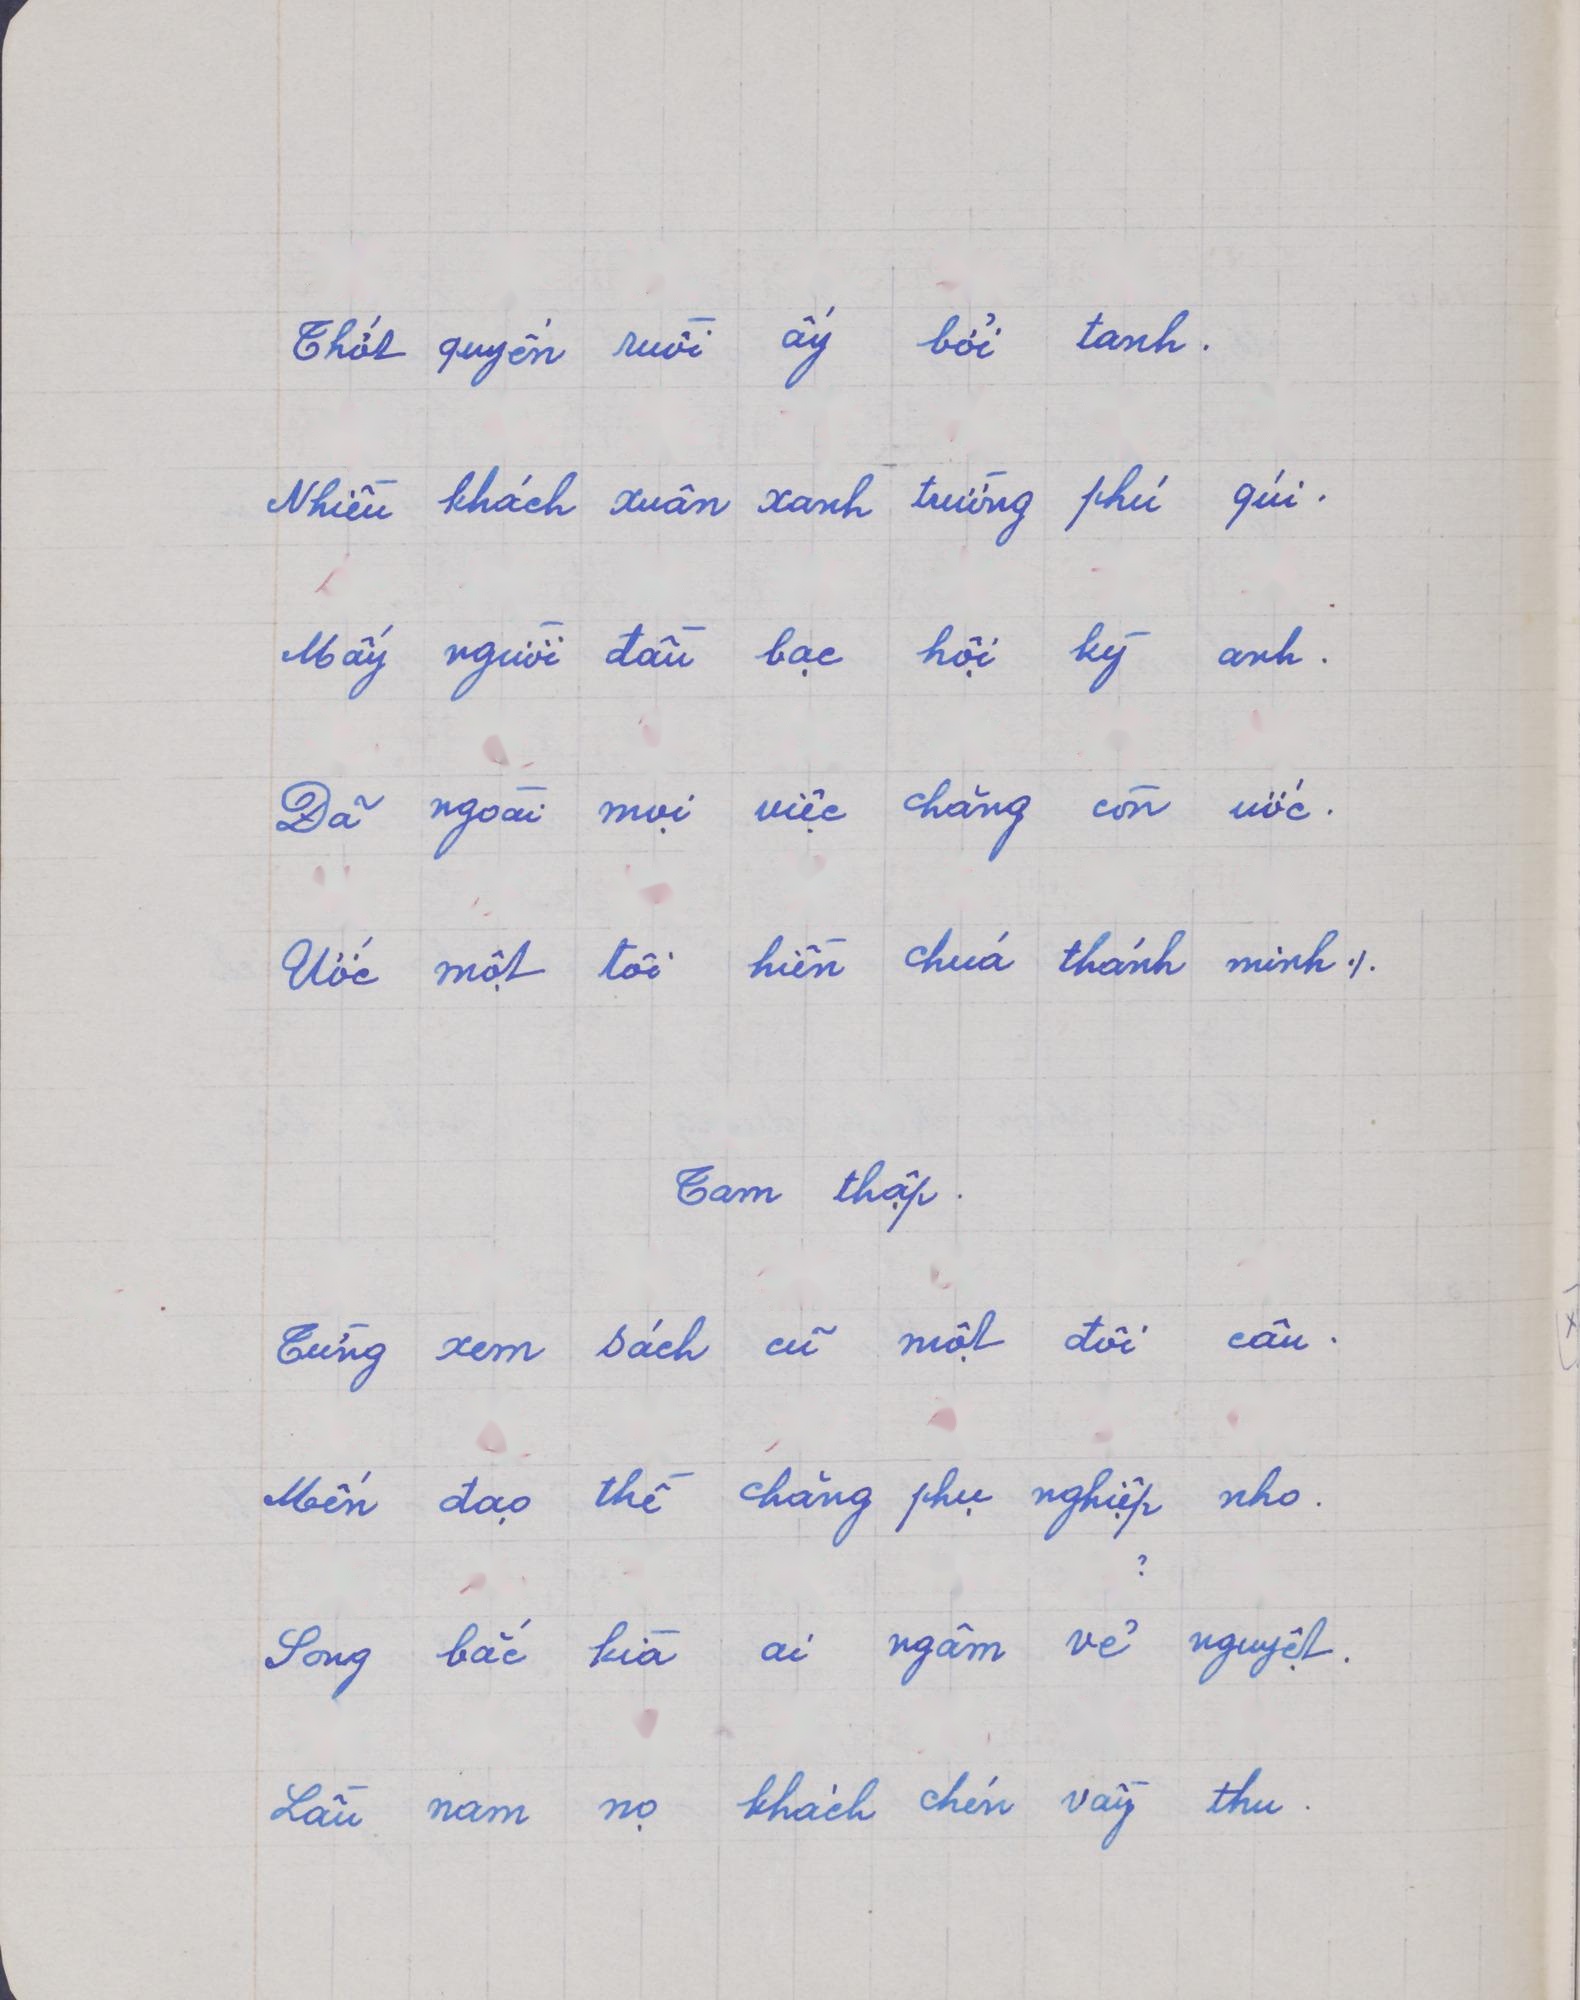 Thớt quyến ruồi ấy bởi tanh.
Nhiều khách xuân xanh trường phú qúi.
Mấy người đầu bạc hội kỳ anh.
Đã ngoài mọi việc chăng còn ước.
Ước một tôi hiền chuá thánh minh ./.
Tam thập.
Từng xem sách cũ một đôi câu.
Mến đạo thề chăng phụ nghiệp nho.
?
Song bắc kià ai ngâm vẻ nguyệt.
Lầu nam nọ khách chén vầy thu.